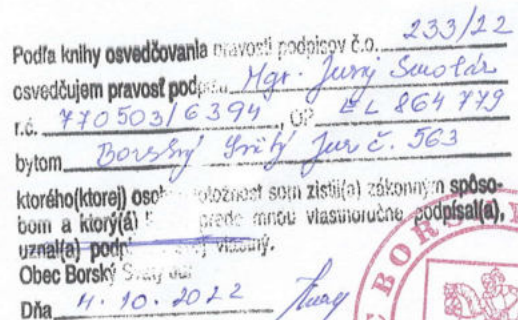 Podľa knihy osvedčovania pravosti podpisov č.o. 233/22
osvedčujem pravosť podpisu Mgr. Juraj Smolár
r.č. 770503/6394, OP EL 864 779
bytom Borský Svätý Jur č. 563
ktorého(ktorej) osob totožnosť som zistil(a) zákonným spôso-
bom a ktorý(á) predo mnou vlastnoručne podpísal(a),
uznal(a) podpi vlastný.
Obec Borský Svätý Jur
Dňa 11. 10. 2022
C BORSK